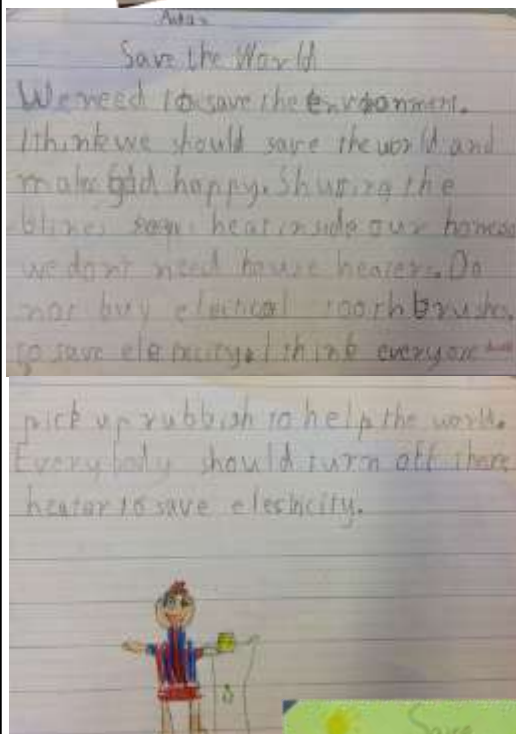 Save the World
We need to save the envronment.
I think we should save the world and
make God happy. Shuting the
blines keeps heat inside our homes so
we don't need house heaters. Do
not buy electical toothbrushes,
to save electricity. I think everyone
pick up rubbish to help the world.
Everybody should turn off there
heater to save elesticity.
Save